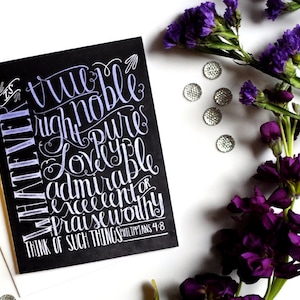 WHATEVER is
true
noble
right
pure
lovely
admirable
excellent or
praiseworthy
THINK OF SUCH THINGS PHILIPPIANS 4:8